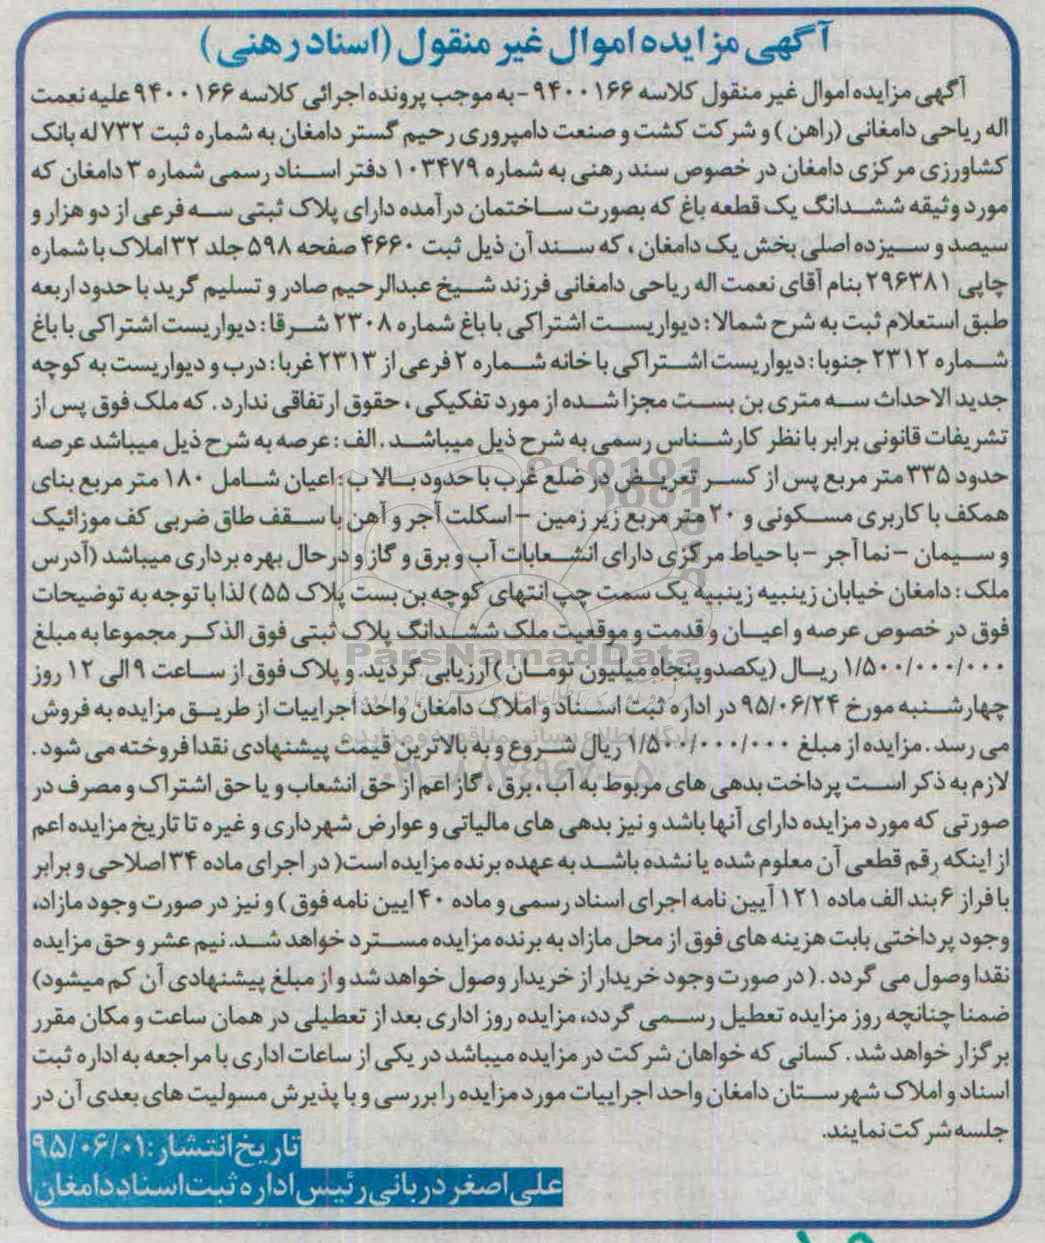 آگهی مزایده اموال غیر منقول (اسناد رهنی)
آگهی مزایده اموال غیر منقول کلاسه ۹۴۰۰۱۶۶ - به موجب پرونده اجرائی کلاسه ۹۴۰۰۱۶۶ علیه نعمت
اله ریاحی دامغانی (راهن) و شرکت کشت و صنعت دامپروری رحیم گستر دامغان به شماره ثبت ۷۳۲ له بانک
کشاورزی مرکزی دامغان در خصوص سند رهنی به شماره ۱۰۳۴۷۹ دفتر اسناد رسمی شماره ۳ دامغان که
مورد وثیقه ششدانگ یک قطعه باغ که بصورت ساختمان درآمده دارای پلاک ثبتی سه فرعی از دو هزار و
سیصد و سیزده اصلی بخش یک دامغان، که سند آن ذیل ثبت ۴۶۶۰ صفحه ۵۹۸ جلد ۳۲ املاک با شماره
چاپی ۲۹۶۳۸۱ بنام آقای نعمت اله ریاحی دامغانی فرزند شیخ عبدالرحیم صادر و تسلیم گرید با حدود اربعه
طبق استعلام ثبت به شرح شمالا: دیواریست اشتراکی با باغ شماره ۲۳۰۸ شرقا: دیواریست اشتراکی با باغ
شماره ۲۳۱۲ جنوبا: دیواریست اشتراکی با خانه شماره ۲ فرعی از ۲۳۱۳ غربا: درب و دیواریست به کوچه
جدید الاحداث سه متری بن بست مجزا شده از مورد تفکیکی، حقوق ارتفاقی ندارد. که ملک فوق پس از
تشریفات قانونی برابر با نظر کارشناس رسمی به شرح ذیل میباشد. الف: عرصه به شرح ذیل میباشد عرصه
حدود ۳۳۵ متر مربع پس از کسر تعریض در ضلع غرب با حدود بالا ب: اعیان شامل ۱۸۰ متر مربع بنای
همکف با کاربری مسکونی و ۲۰ متر مربع زیر زمین - اسکلت آجر و آهن با سقف طاق ضربی کف موزائیک
و سیمان - نما آجر - با حیاط مرکزی دارای انشعابات آب و برق و گاز و در حال بهره برداری میباشد (آدرس
ملک: دامغان خیابان زینبیه زینبیه یک سمت چپ انتهای کوچه بن بست پلاک ۵۵) لذا با توجه به توضیحات
فوق در خصوص عرصه و اعیان و قدمت و موقعیت ملک ششدانگ پلاک ثبتی فوق الذکر مجموعا به مبلغ
۱/۵۰۰/۰۰۰/۰۰۰ ریال (یکصدو پنجاه میلیون تومان) ارزیابی گردید. و پلاک فوق از ساعت ۹ الی ۱۲ روز
چهارشنبه مورخ ۹۵/۰۶/۲۴ در اداره ثبت اسناد و املاک دامغان واحد اجراییات از طریق مزایده به فروش
می رسد. مزایده از مبلغ ۱/۵۰۰/۰۰۰/۰۰۰ ریال شروع و به بالاترین قیمت پیشنهادی نقدا فروخته می شود.
لازم به ذکر است پرداخت بدهی های مربوط به آب، برق، گاز اعم از حق انشعاب و یا حق اشتراک و مصرف در
صورتی که مورد مزایده دارای آنها باشد و نیز بدهی های مالیاتی و عوارض شهرداری و غیره تا تاریخ مزایده اعم
از اینکه رقم قطعی آن معلوم شده یا نشده باشد به عهده برنده مزایده است( در اجرای ماده ۳۴ اصلاحی و برابر
با فراز ۶ بند الف ماده ۱۲۱ آیین نامه اجرای اسناد رسمی و ماده ۴۰ ایین نامه فوق) و نیز در صورت وجود مازاد،
وجود پرداختی بابت هزینه های فوق از محل مازاد به برنده مزایده مسترد خواهد شد. نیم عشر و حق مزایده
نقدا وصول می گردد. (در صورت وجود خریدار از خریدار وصول خواهد شد و از مبلغ پیشنهادی آن کم میشود)
ضمنا چنانچه روز مزایده تعطیل رسمی گردد، مزایده روز اداری بعد از تعطیلی در همان ساعت و مکان مقرر
برگزار خواهد شد. کسانی که خواهان شرکت در مزایده میباشد در یکی از ساعات اداری با مراجعه به اداره ثبت
اسناد و املاک شهرستان دامغان واحد اجراییات مورد مزایده را بررسی و با پذیرش مسولیت های بعدی آن در
جلسه شرکت نمایند.
تاریخ انتشار: ۹۵/۰۶/۰۱
علی اصغر دربانی رئیس اداره ثبت اسناد دامغان
ParsNamadData
پایگاه اطلاع رسانی مناقصه و مزایده